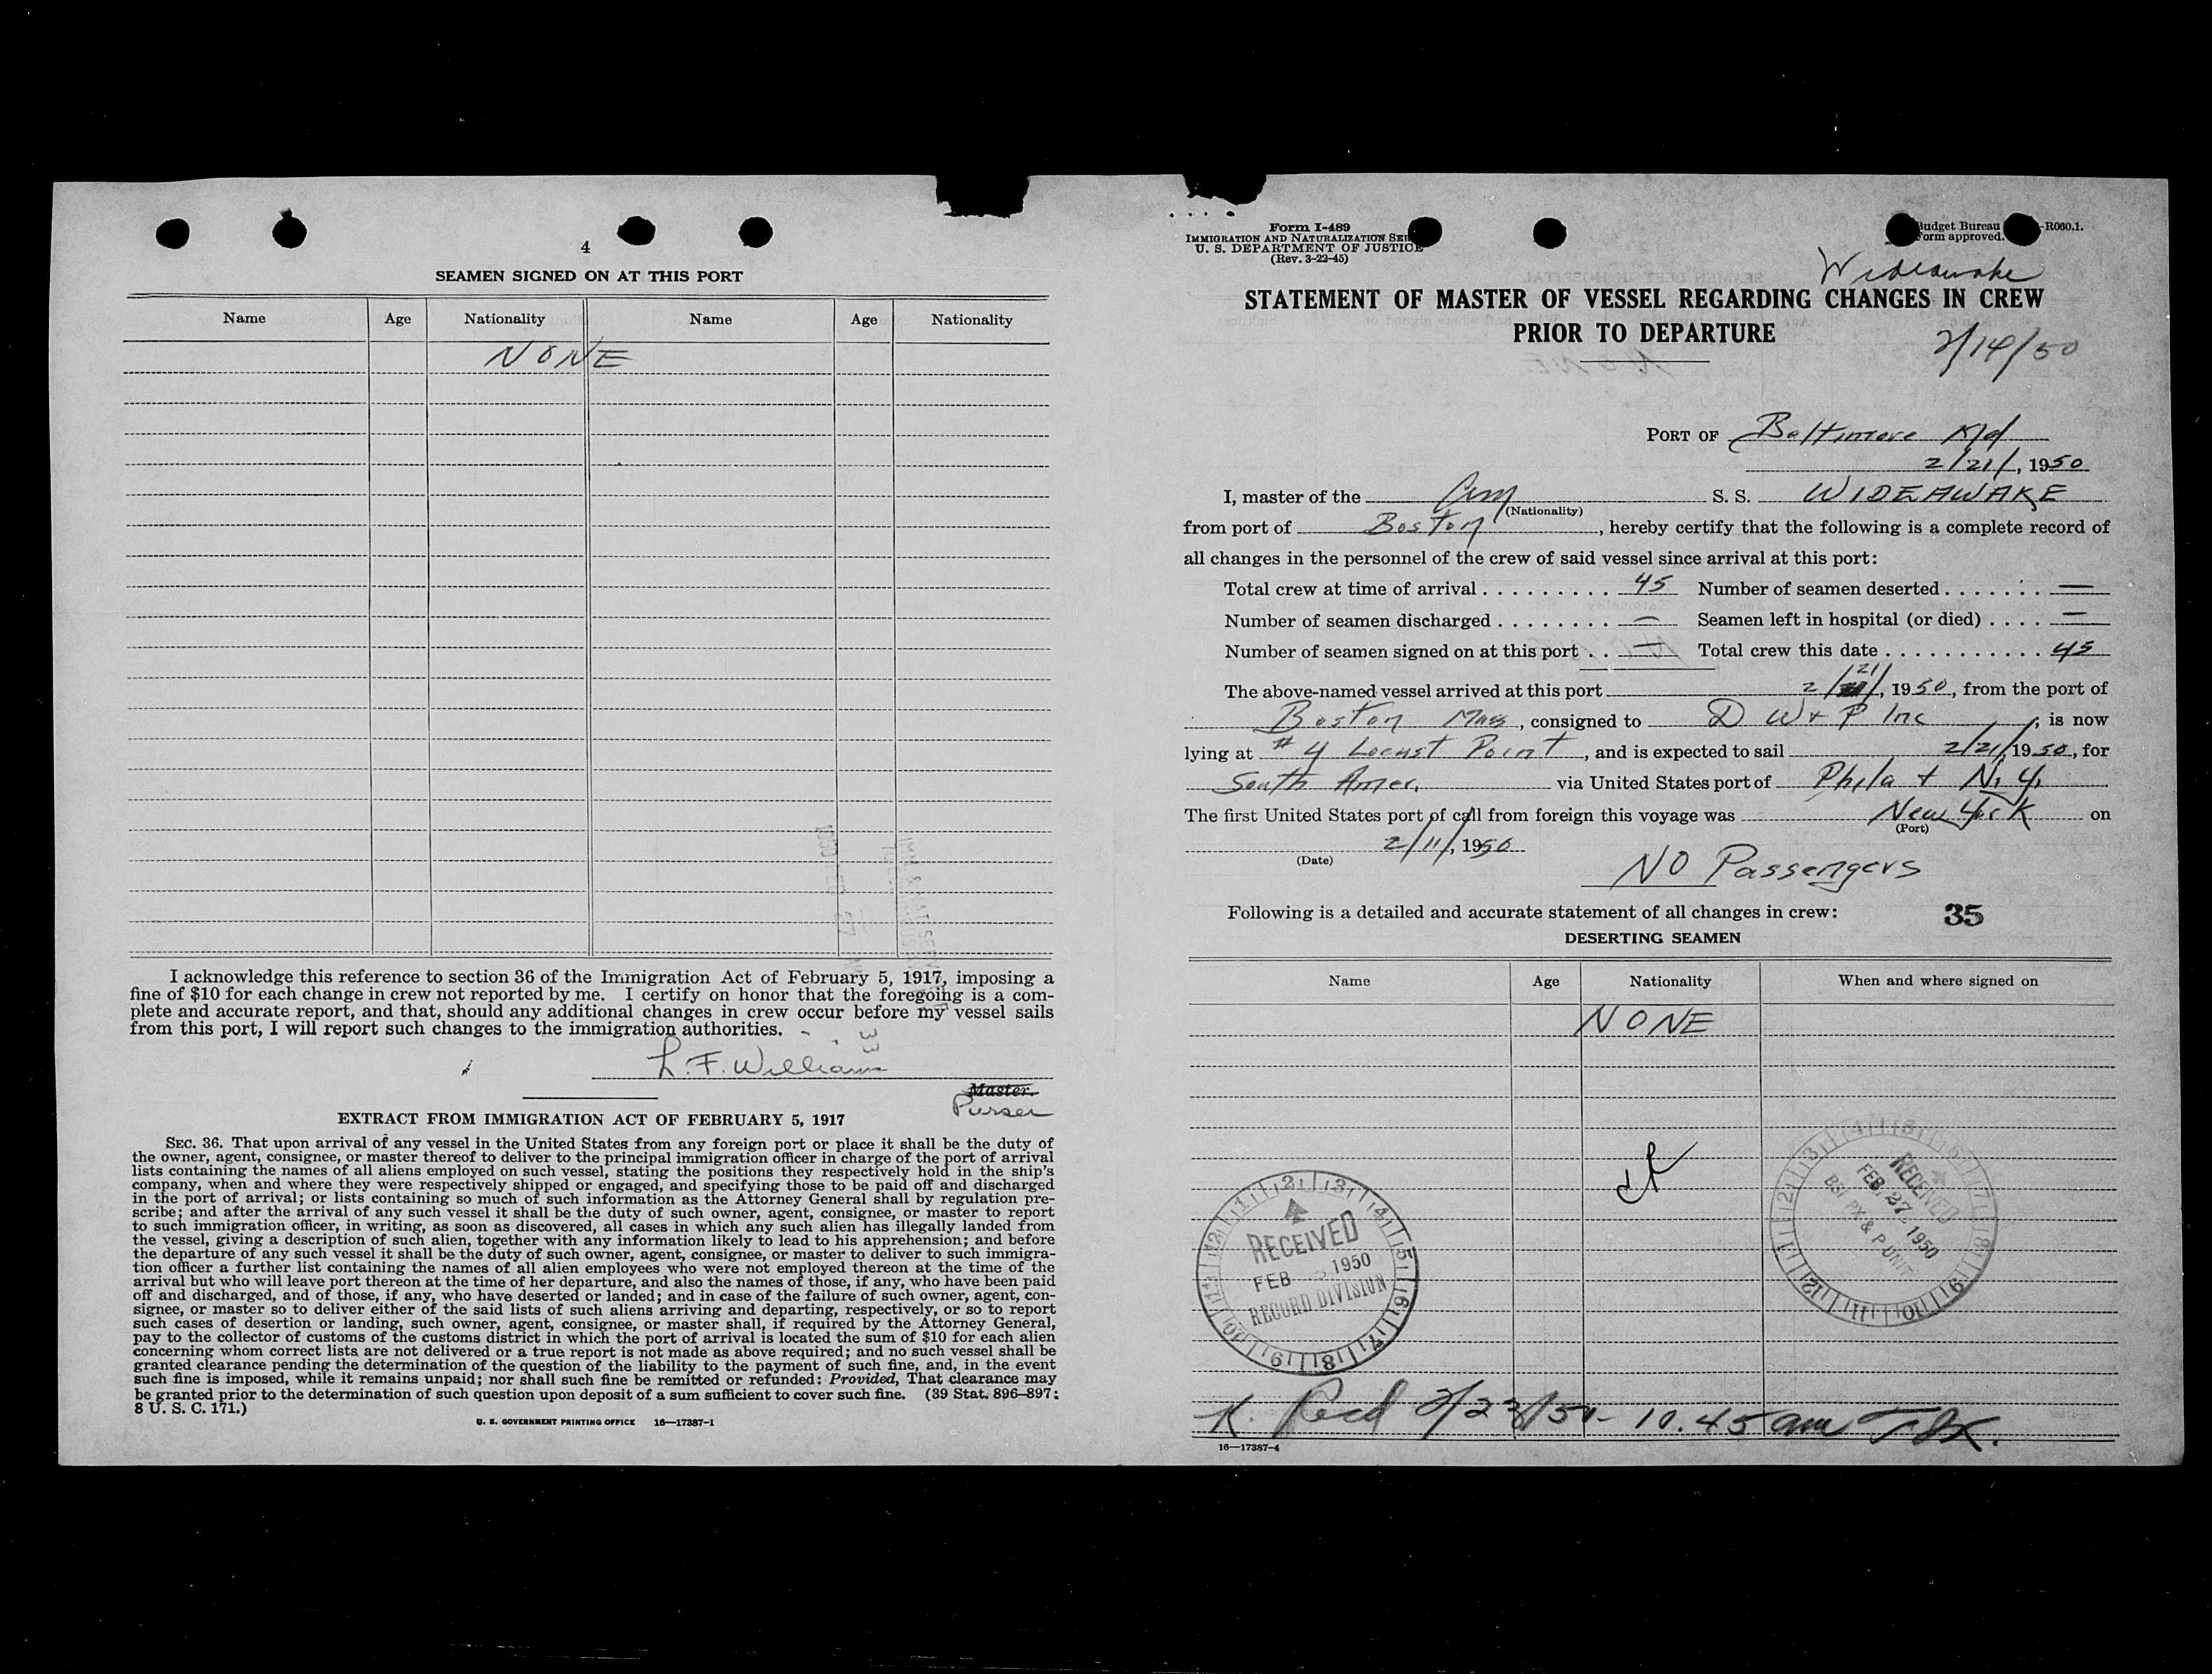 4
SEAMEN SIGNED ON AT THIS PORT
Name Age Nationality Name Age Nationality
NONE
I acknowledge this reference to section 36 of the Immigration Act of February 5, 1917, imposing a
fine of $10 for each change in crew not reported by me. I certify on honor that the foregoing is a com-
plete and accurate report, and that, should any additional changes in crew occur before my vessel sails
from this port, I will report such changes to the immigration authorities.
33
L. F. Williams
Master.
Purser
EXTRACT FROM IMMIGRATION ACT OF FEBRUARY 5, 1917
SEC. 36. That upon arrival of any vessel in the United States from any foreign port or place it shall be the duty of
the owner, agent, consignee, or master thereof to deliver to the principal immigration officer in charge of the port of arrival
lists containing the names of all aliens employed on such vessel, stating the positions they respectively hold in the ship's
company, when and where they were respectively shipped or engaged, and specifying those to be paid off and discharged
in the port of arrival; or lists containing so much of such information as the Attorney General shall by regulation pre-
scribe; and after the arrival of any such vessel it shall be the duty of such owner, agent, consignee, or master to report
to such immigration officer, in writing, as soon as discovered, all cases in which any such alien has illegally landed from
the vessel, giving a description of such alien, together with any information likely to lead to his apprehension; and before
the departure of any such vessel it shall be the duty of such owner, agent, consignee, or master to deliver to such immigra-
tion officer a further list containing the names of all alien employees who were not employed thereon at the time of the
arrival but who will leave port thereon at the time of her departure, and also the names of those, if any, who have been paid
off and discharged, and of those, if any, who have deserted or landed; and in case of the failure of such owner, agent, con-
signee, or master so to deliver either of the said lists of such aliens arriving and departing, respectively, or so to report
such cases of desertion or landing, such owner, agent, consignee, or master shall, if required by the Attorney General,
pay to the collector of customs of the customs district in which the port of arrival is located the sum of $10 for each alien
concerning whom correct lists are not delivered or a true report is not made as above required; and no such vessel shall be
granted clearance pending the determination of the question of the liability to the payment of such fine, and, in the event
such fine is imposed, while it remains unpaid; nor shall such fine be remitted or refunded: Provided, That clearance may
be granted prior to the determination of such question upon deposit of a sum sufficient to cover such fine. (39 Stat. 896–897;
8 U. S. C. 171.)
U. S. GOVERNMENT PRINTING OFFICE 16—17387-1
Form I-489
IMMIGRATION AND NATURALIZATION
U. S. DEPARTMENT OF JUSTICE
(Rev. 3-22-45)
Budget Bureau -R060.1.
Form approved.
Wideawake
STATEMENT OF MASTER OF VESSEL REGARDING CHANGES IN CREW
PRIOR TO DEPARTURE
2/14/50
PORT OF Baltimore Md
2/21/, 1950
I, master of the Am S. S. WIDEAWAKE
(Nationality)
from port of Boston, hereby certify that the following is a complete record of
all changes in the personnel of the crew of said vessel since arrival at this port:
Total crew at time of arrival . . . . . . . . . 45 Number of seamen deserted . . . . . . . —
Number of seamen discharged . . . . . . . . — Seamen left in hospital (or died) . . . . —
Number of seamen signed on at this port . . — Total crew this date . . . . . . . . . . . 45
The above-named vessel arrived at this port 2/21/, 1950, from the port of
Boston Mass, consigned to D W + P Inc, is now
lying at # 4 Locust Point, and is expected to sail 2/21/1950, for
South Amer. via United States port of Phila + N. Y.
The first United States port of call from foreign this voyage was New York on
(Port)
2/11/, 1950
(Date)
NO Passengers
Following is a detailed and accurate statement of all changes in crew: 35
DESERTING SEAMEN
Name Age Nationality When and where signed on
NONE
RECEIVED
FEB 1950
RECORD DIVISION
RECEIVED
FEB. 27 1950
BSI PX & P UNIT
K. Recd 2/23/50- 10.45 am
16—17387-4